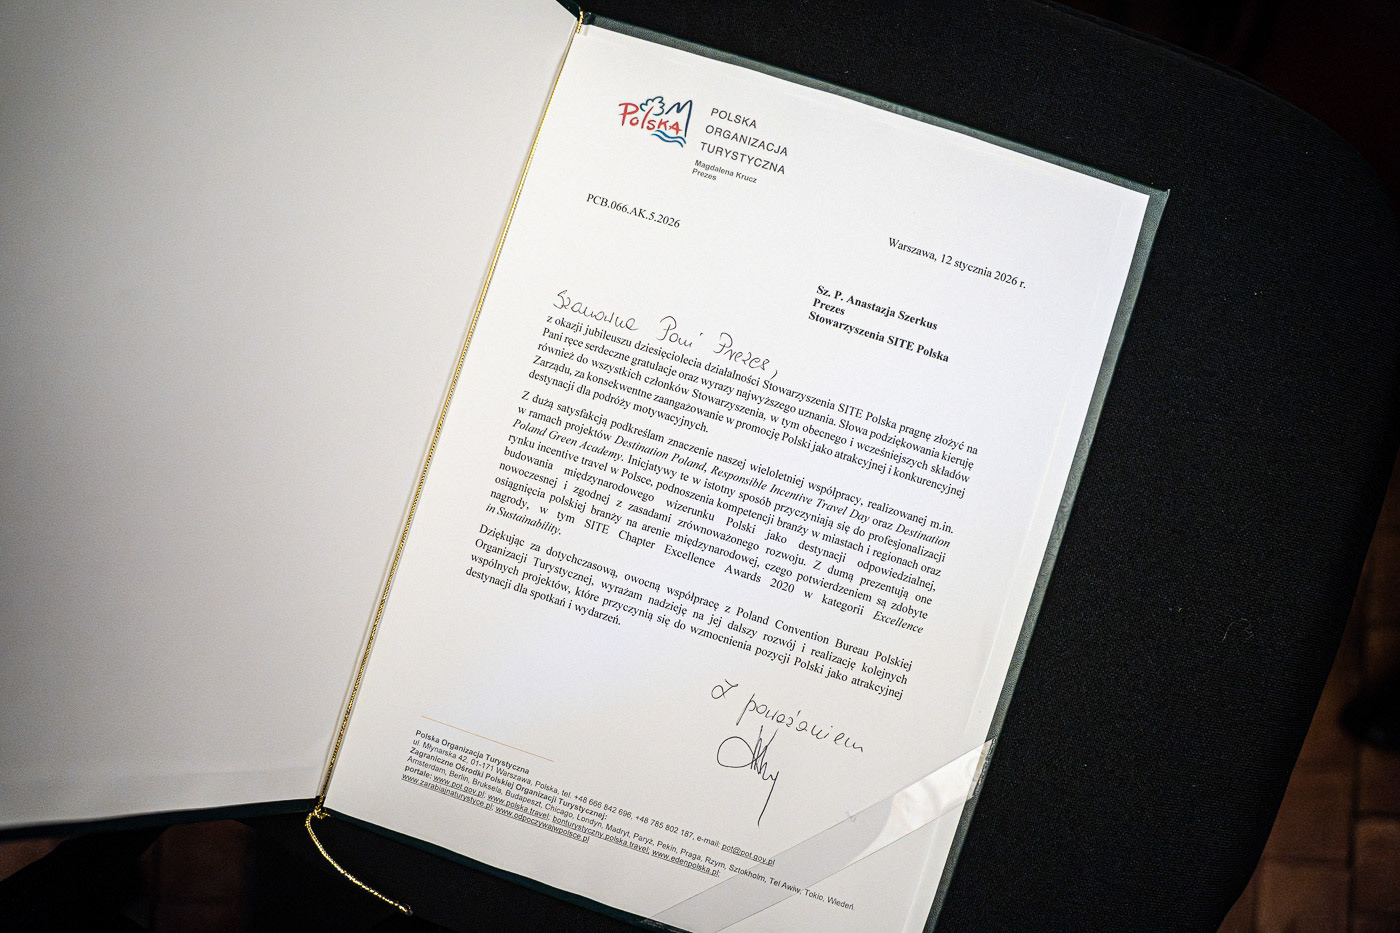 POLSKA
POLSKA
ORGANIZACJA
TURYSTYCZNA
Magdalena Krucz
Prezes
PCB.066.AK.5.2026
Warszawa, 12 stycznia 2026 r.
Sz. P. Anastazja Szerkus
Prezes
Stowarzyszenia SITE Polska
Szanowna Pani Prezes,
z okazji jubileuszu dziesięciolecia działalności Stowarzyszenia SITE Polska pragnę złożyć na
Pani ręce serdeczne gratulacje oraz wyrazy najwyższego uznania. Słowa podziękowania kieruję
również do wszystkich członków Stowarzyszenia, w tym obecnego i wcześniejszych składów
Zarządu, za konsekwentne zaangażowanie w promocję Polski jako atrakcyjnej i konkurencyjnej
destynacji dla podróży motywacyjnych.
Z dużą satysfakcją podkreślam znaczenie naszej wieloletniej współpracy, realizowanej m.in.
w ramach projektów Destination Poland, Responsible Incentive Travel Day oraz Destination
Poland Green Academy. Inicjatywy te w istotny sposób przyczyniają się do profesjonalizacji
rynku incentive travel w Polsce, podnoszenia kompetencji branży w miastach i regionach oraz
budowania międzynarodowego wizerunku Polski jako destynacji odpowiedzialnej,
nowoczesnej i zgodnej z zasadami zrównoważonego rozwoju. Z dumą prezentują one
osiągnięcia polskiej branży na arenie międzynarodowej, czego potwierdzeniem są zdobyte
nagrody, w tym SITE Chapter Excellence Awards 2020 w kategorii Excellence
in Sustainability.
Dziękując za dotychczasową, owocną współpracę z Poland Convention Bureau Polskiej
Organizacji Turystycznej, wyrażam nadzieję na jej dalszy rozwój i realizację kolejnych
wspólnych projektów, które przyczynią się do wzmocnienia pozycji Polski jako atrakcyjnej
destynacji dla spotkań i wydarzeń.
Z poważaniem
Polska Organizacja Turystyczna
ul. Młynarska 42, 01-171 Warszawa, Polska, tel. +48 666 842 696, +48 785 802 187, e-mail: pot@pot.gov.pl
Zagraniczne Ośrodki Polskiej Organizacji Turystycznej:
Amsterdam, Berlin, Bruksela, Budapeszt, Chicago, Londyn, Madryt, Paryż, Pekin, Praga, Rzym, Sztokholm, Tel Awiw, Tokio, Wiedeń
portale: www.pot.gov.pl; www.polska.travel; bonturystyczny.polska.travel; www.edenpolska.pl;
www.zarabiajnaturystyce.pl; www.odpoczywajwpolsce.pl